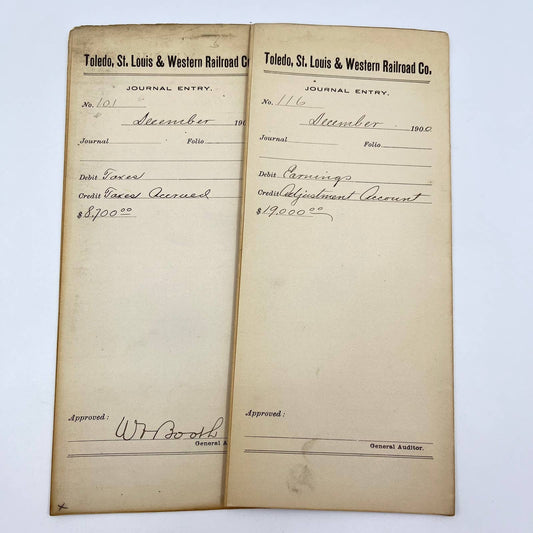 Toledo, St. Louis & Western Railroad C
JOURNAL ENTRY.
No. 101
December 190
Journal Folio
Debit Taxes
Credit Taxes Accrued
$8,700.00
Approved:
Booth
General A
x
Toledo, St. Louis & Western Railroad Co.
JOURNAL ENTRY.
No. 116
December 1900
Journal Folio
Debit Earnings
Credit Adjustment Account
$19,000.00
Approved:
General Auditor.